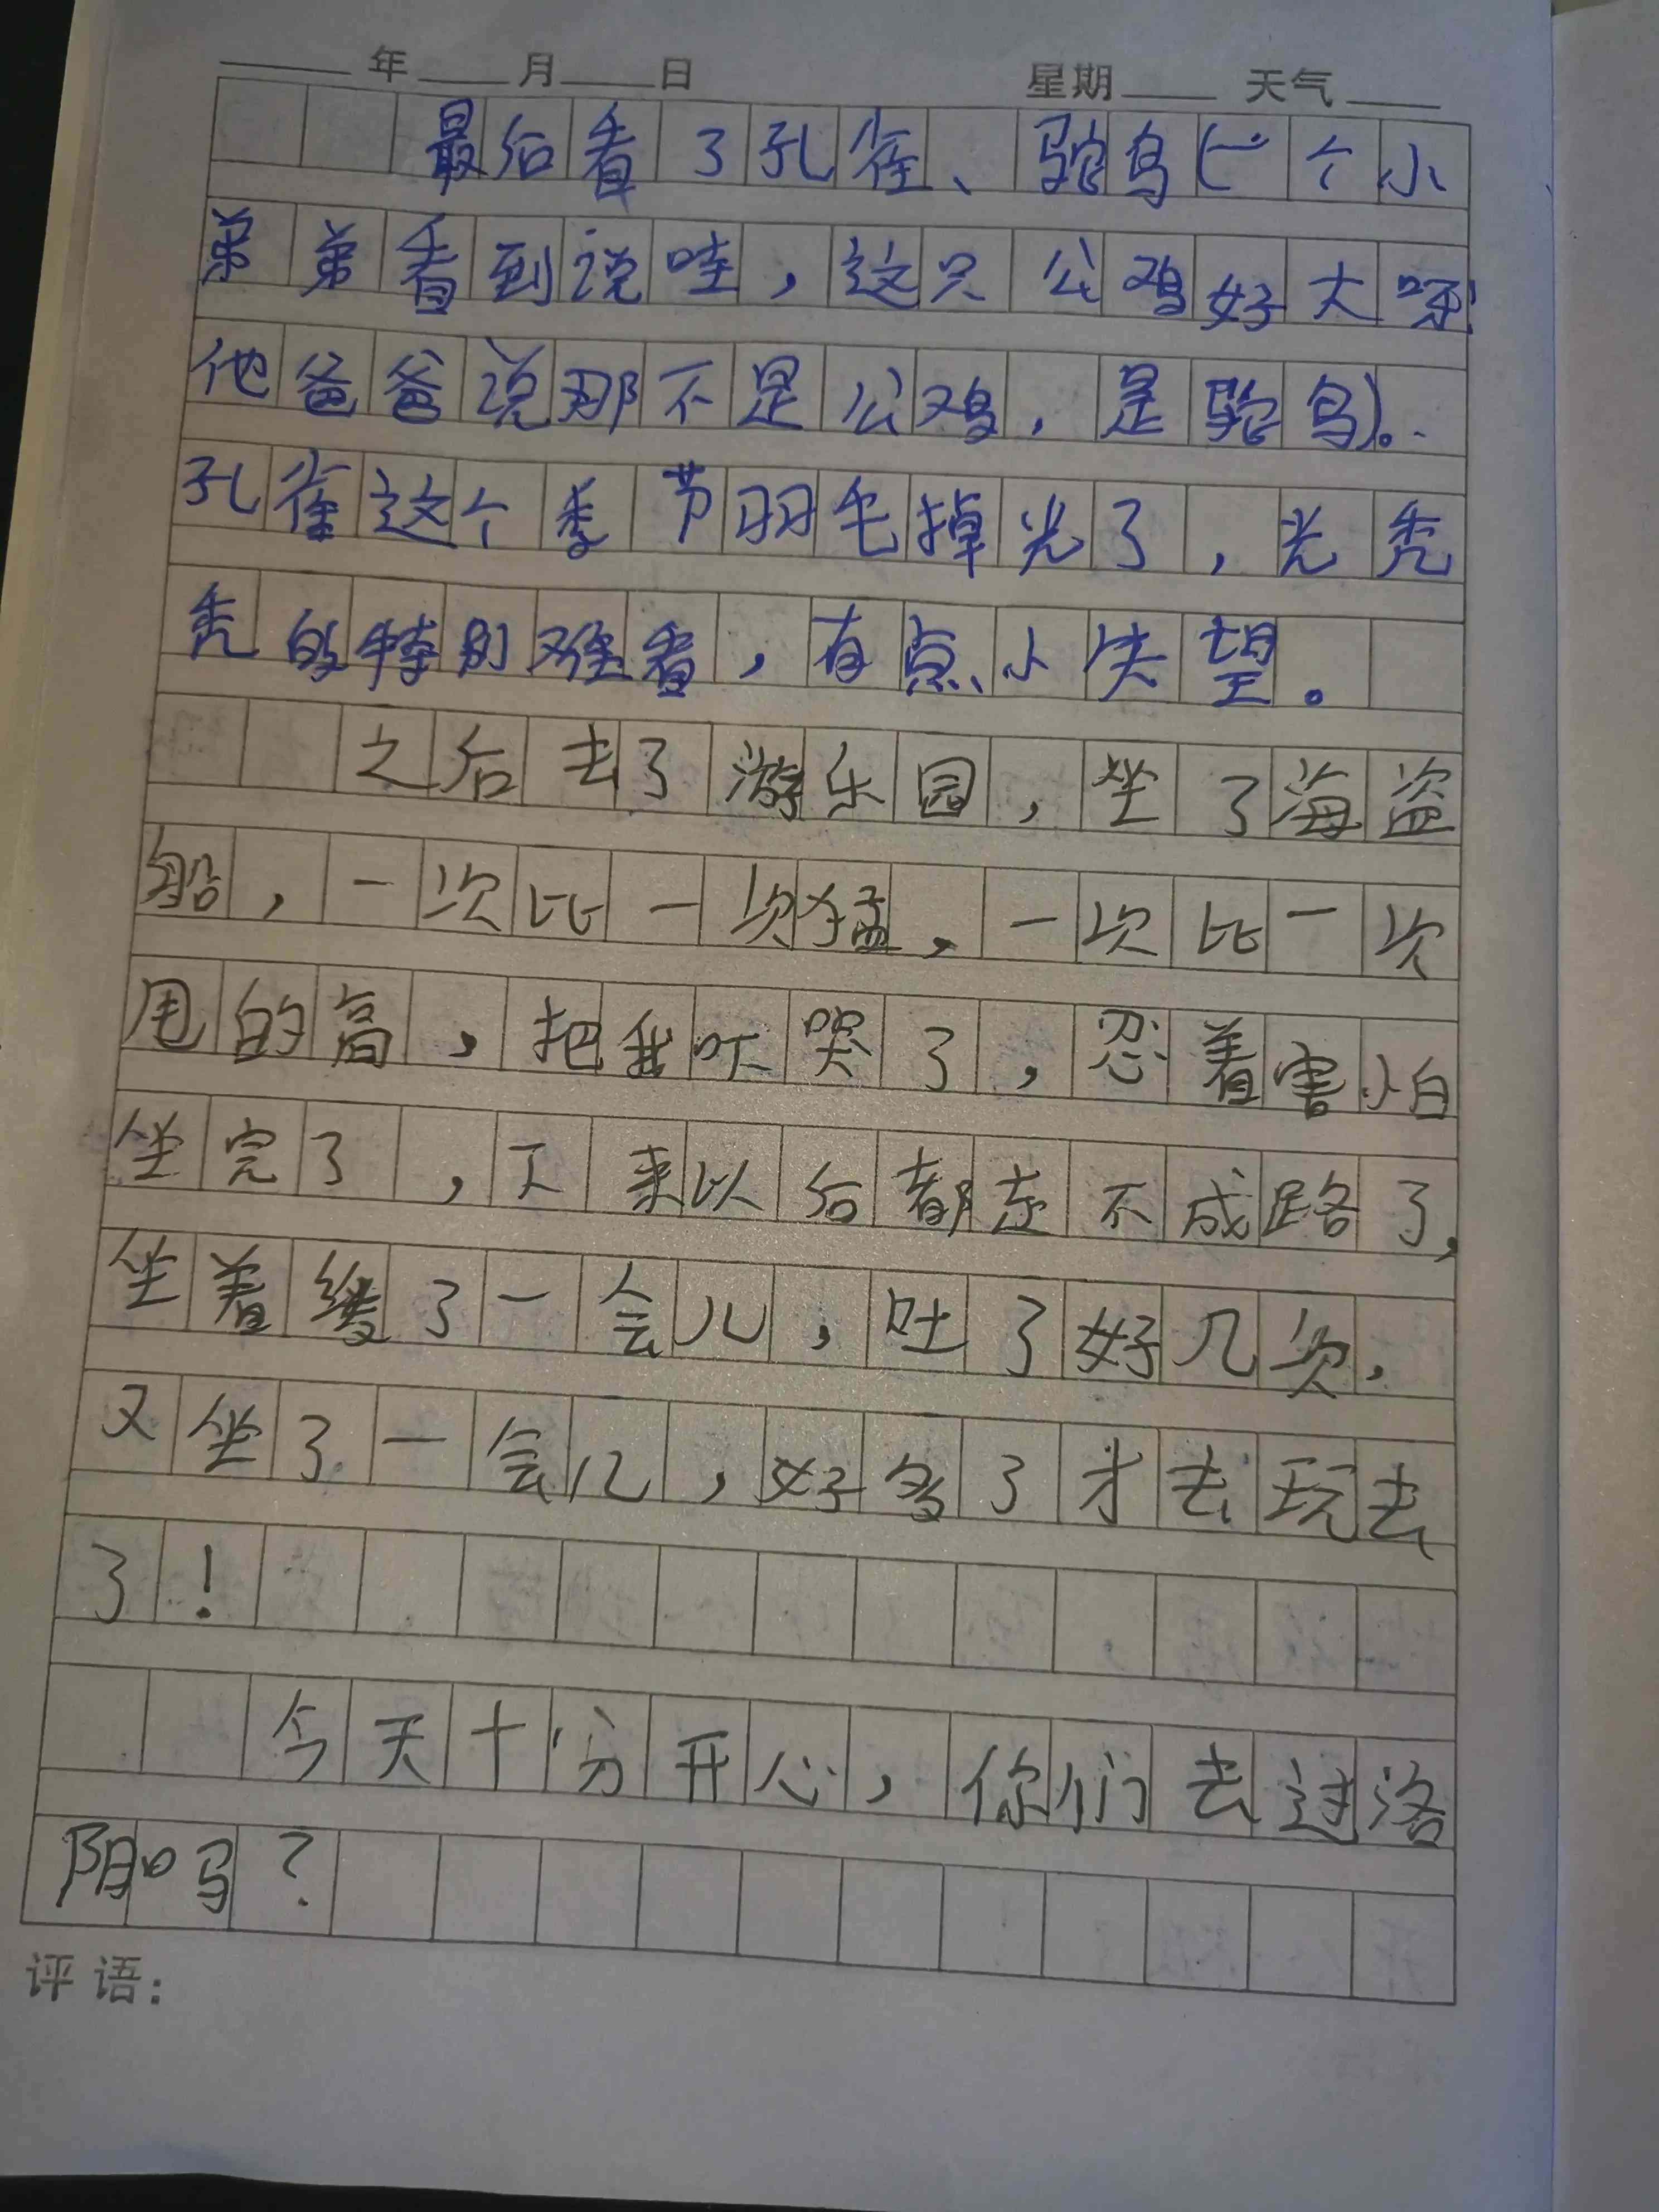 年 月 日 星期 天气
最后看了孔雀、鸵鸟(一个小
弟弟看到说哇，这只公鸡好大呀!
他爸爸说那不是公鸡，是鸵鸟)。
孔雀这个季节羽毛掉光了，光秃
秃的特别难看，有点小失望。
之后去了游乐园，坐了海盗
船，一次比一次猛，一次比一次
甩的高，把我吓哭了，忍着害怕
坐完了，下来以后都走不成路了，
坐着缓了一会儿，吐了好几次，
又坐了一会儿，好多了才去玩去
了！
今天十分开心，你们去过洛
阳吗？
评语：